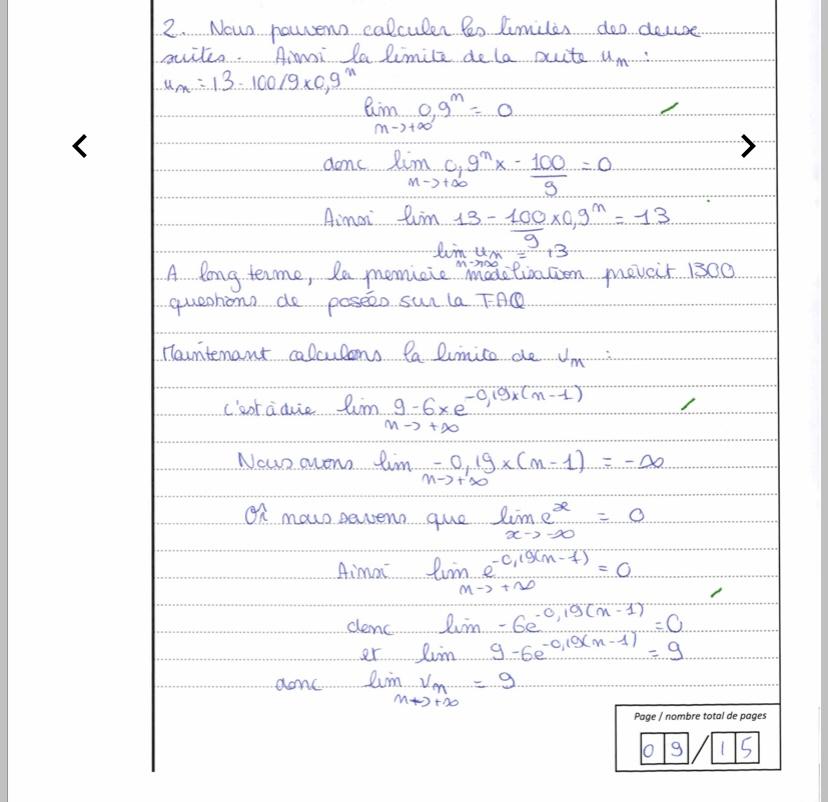 2. Nous pouvons calculer les limites des deux
suites. Ainsi la limite de la suite un :
un = 13 - 100/9 x 0,9^n
lim 0,9^n = 0
n -> +∞
donc lim 0,9^n x - 100/9 = 0
n -> +∞
Ainsi lim 13 - 100/9 x 0,9^n = 13
lim un = 13
n -> +∞
A long terme, la premiere modélisation prévoit 1300
questions de posées sur la FAQ
Maintenant calculons la limite de vn :
c'est à dire lim 9 - 6 x e^-0,19x(n-1)
n -> +∞
Nous avons lim - 0,19 x (n-1) = -∞
n -> +∞
Or nous savons que lim e^x = 0
x -> -∞
Ainsi lim e^-0,19(n-1) = 0
n -> +∞
donc lim -6e^-0,19(n-1) = 0
et lim 9-6e^-0,19x(n-1) = 9
donc lim vn = 9
n -> +∞
Page / nombre total de pages
09/15